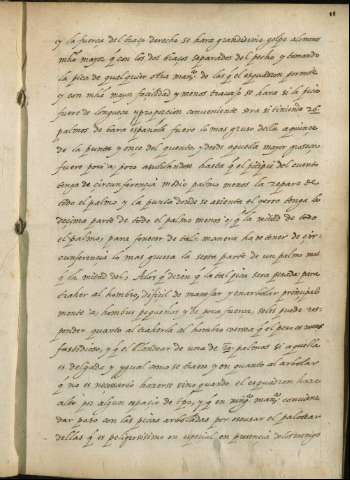 y la fuerça del braço derecho se hara grandissimo golpe al menos
mucho mayor q̃ con los dos braços separados del pecho, y tomando
la pica de qualquier otra man.ª de las q̃ el esquadron permite
y con mucha mayor façilidad y menos travajo se hara si la pica
fuere de longueza y proporçion conveniente sera si teniendo 26
palmos de bara española fuere lo mas grueso della a quinze
de la punta y onze del quento, y desde aquella mayor grueseza
fuere poco a poco hasta q̃ el del cuento
tenga de circunferençia medio palmo menos la parte de
todo el palmo y la punta donde se asienta el yerro tenga la
deçima parte de todo el palmo menos q̃ la mitad de todo
el palmo; para fenecer de tal manera ha de tener de cir-
cunferençia lo mas gruesa la sexta parte de un palmo mas
q̃ la mitad del; A los q̃ dizen q̃ la tal pica sera pesada para
traher al hombro, difiçil de manejar y enarbolar prinçipal-
mente a hombres pequeños y de poca fuerça, seles puede res-
ponder quanto al traherla al hombro q̃ el peso es menos
fastidioso, y q̃ el blandear de una de palmos si aquella
es delgada y ygual como se usan y en quanto al arbolar
q̃ no es neçessario hazerse sino quando el esquadron haze
alto por algun espaçio de tpo, y q̃ en ning.ª man.ª convien
dar paso con las picas arboladas por escusar el palotear
dellas q̃ es peligrosissimo en espeçial en presençia del enemigo